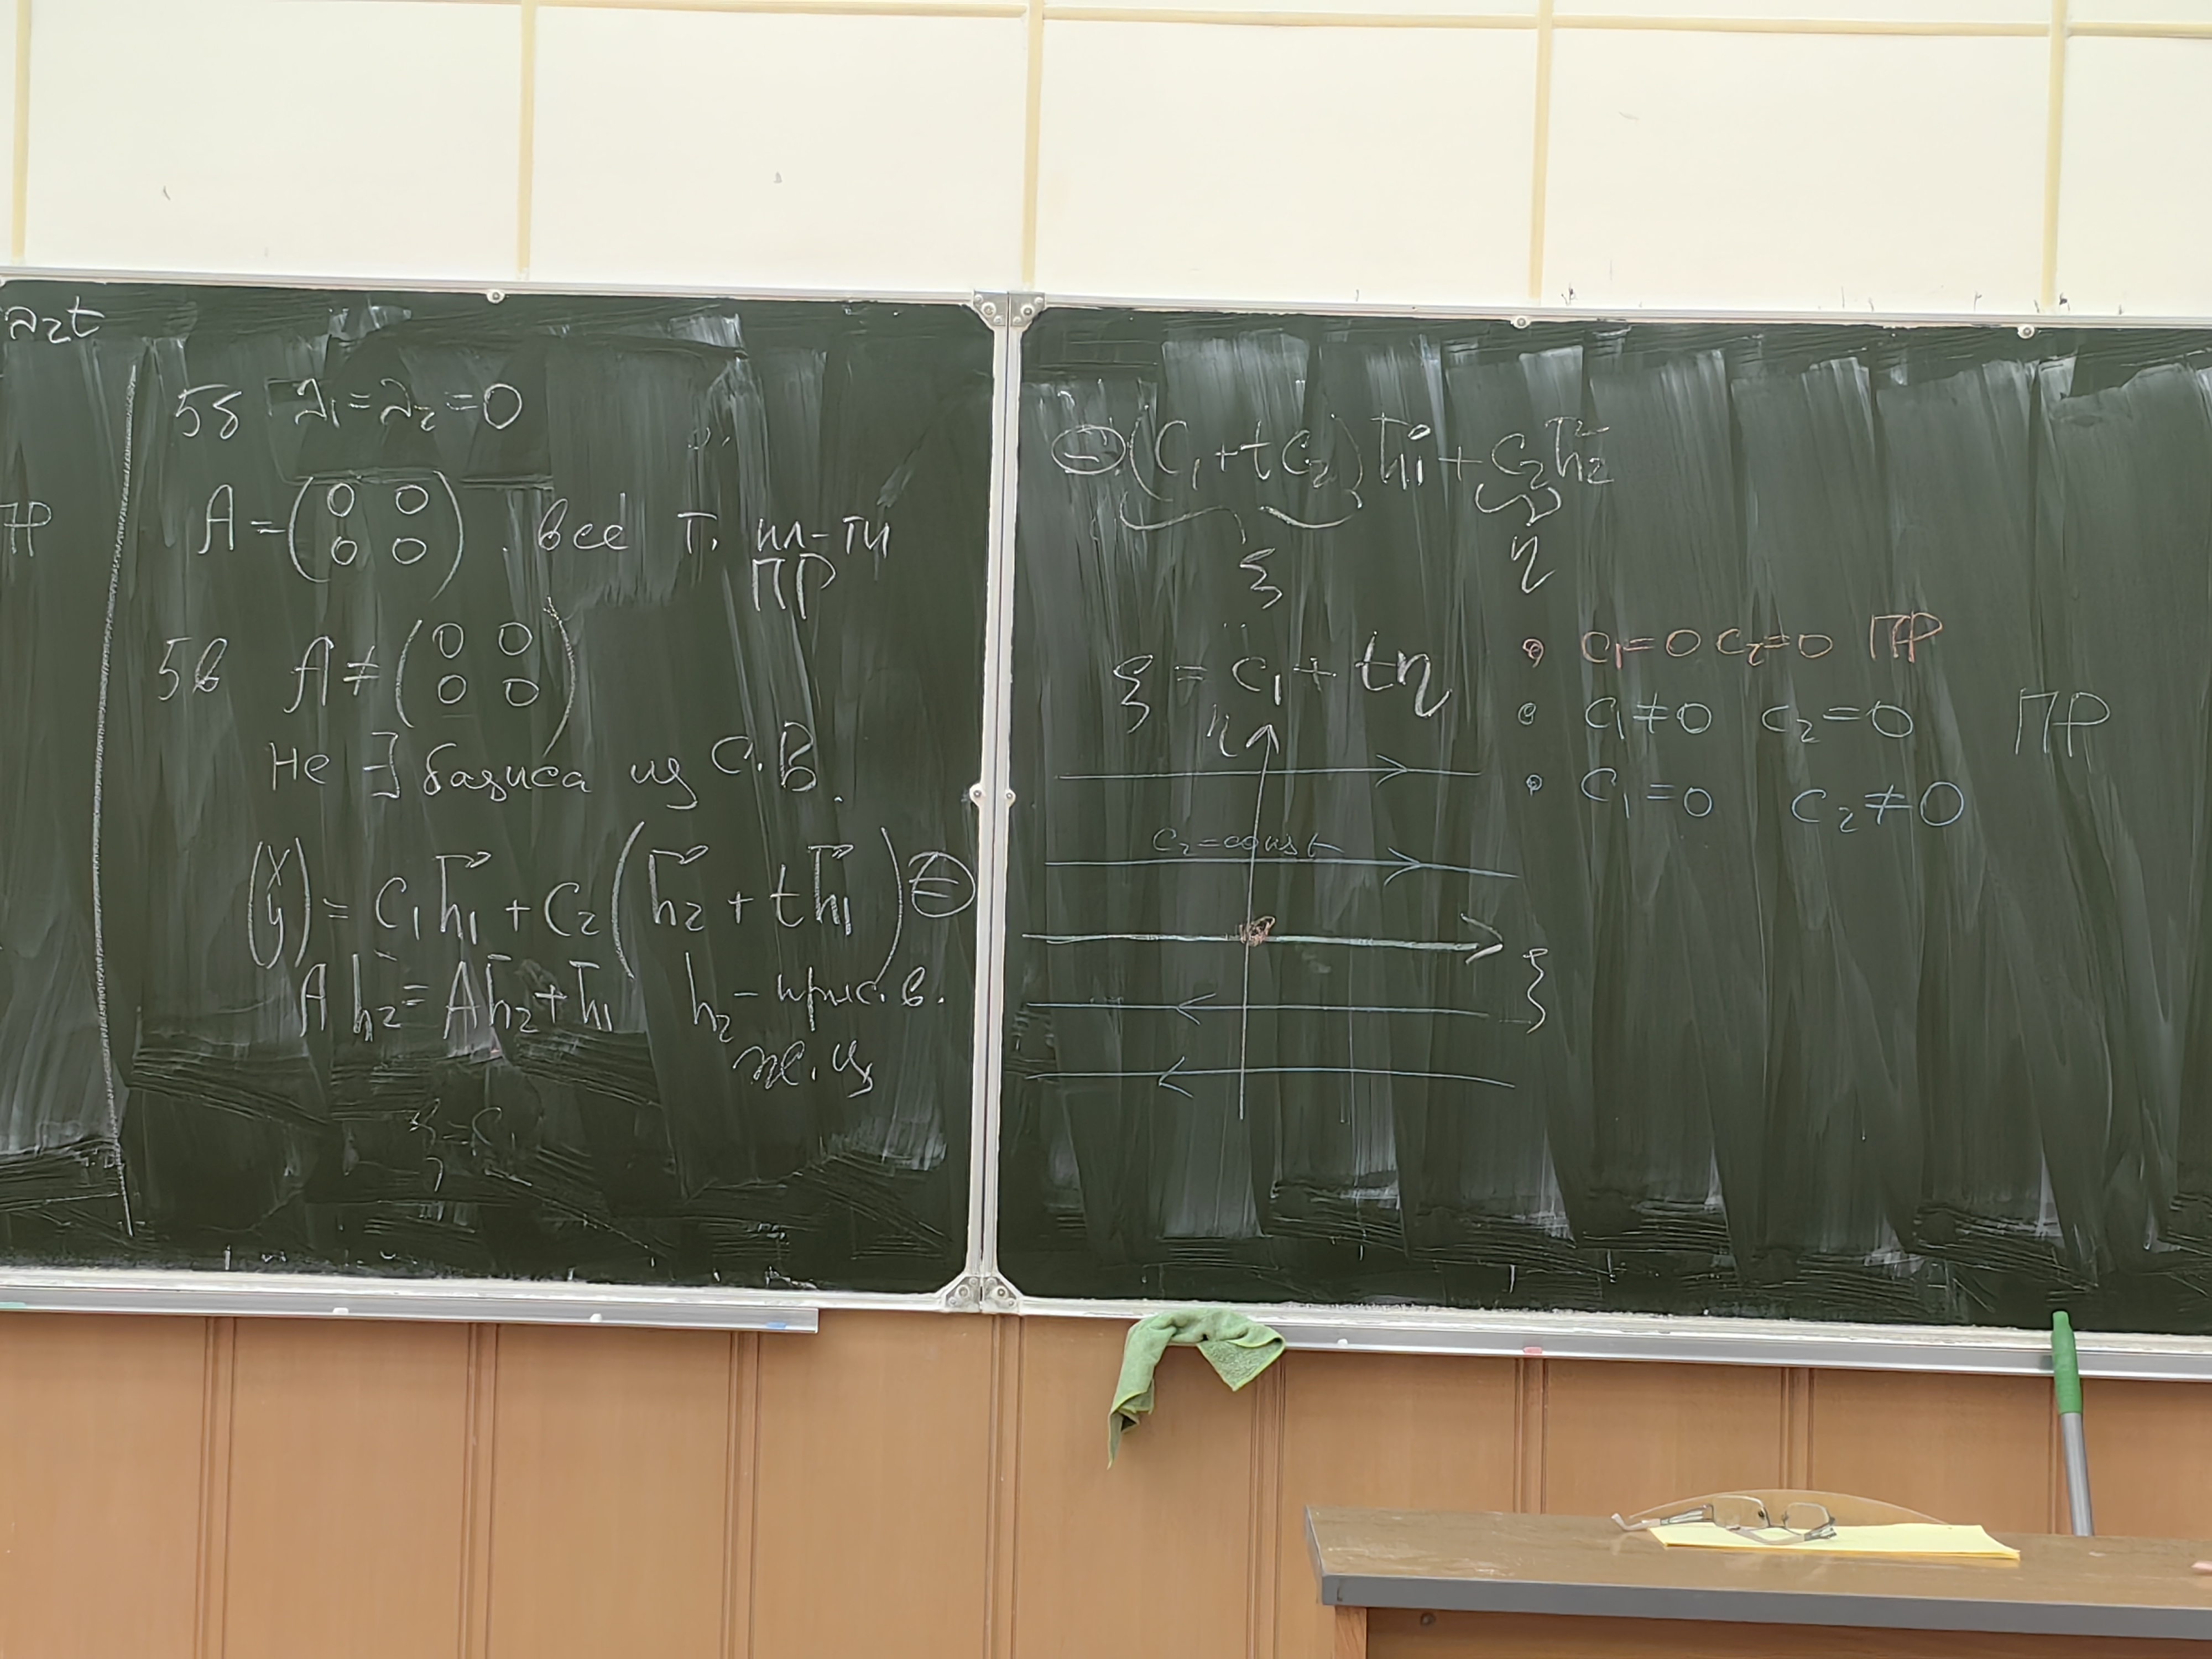 λ₂t
ПР
5б λ₁=λ₂=0
A = (0 0
0 0), все т. пл-ти
ПР
5в A ≠ (0 0
0 0)
Не ∃ базиса из С.В.
(x
y) = C₁h⃗₁ + C₂(h⃗₂ + t h⃗₁) ⊜
A h̄₂ = A h̄₂ + h̄₁ h₂ – прис. в.
ж.ц
ξ = C₁
⊜ (C₁ + t C₂) h⃗₁ + C₂ h⃗₂
ξ η
ξ = C₁ + tη
η
C₂ = const
ξ
• C₁=0 C₂=0 ПР
• C₁≠0 C₂=0 ПР
• C₁=0 C₂≠0